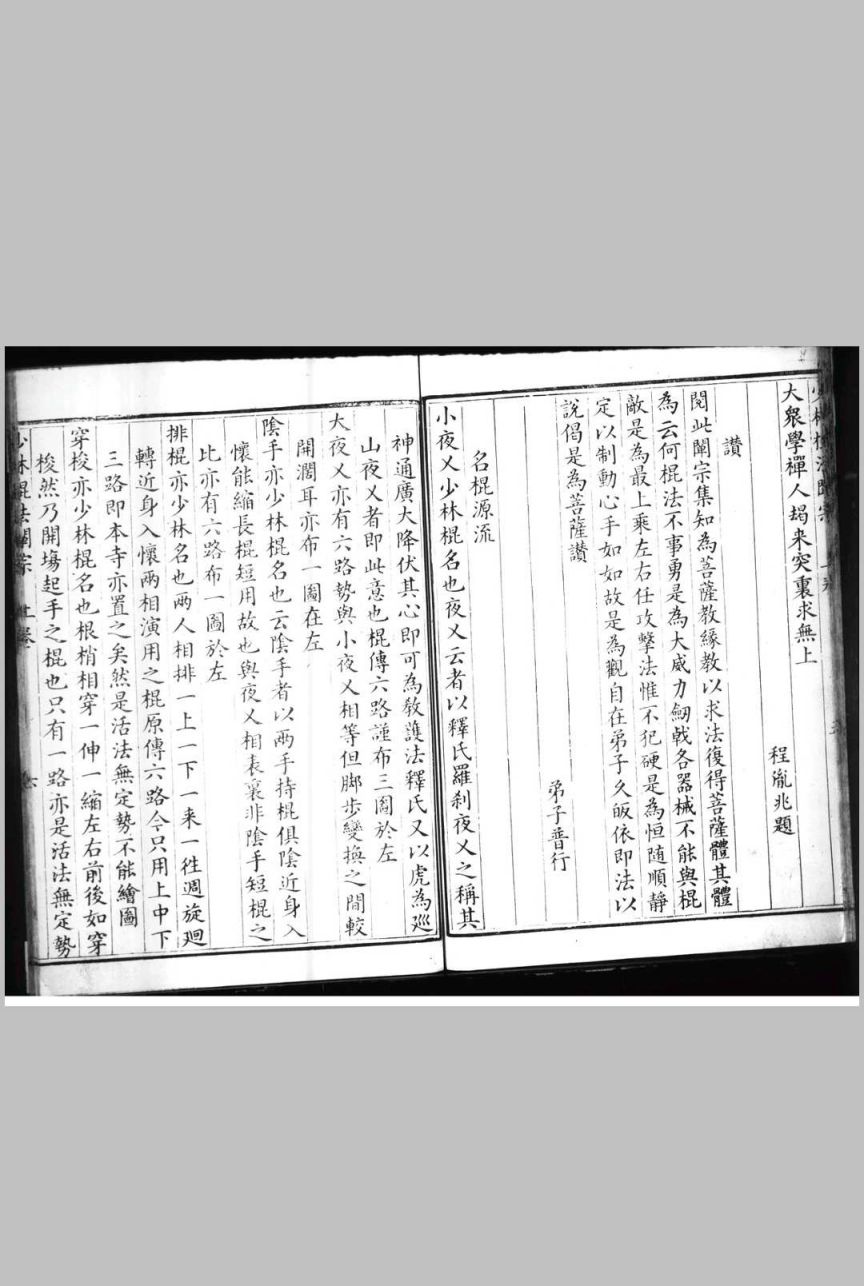 大衆學禪人朅来突裏求無上
程胤兆題
讃
閱此闡宗集知為菩薩教縁教以求法復得菩薩體其體
為云何棍法不事勇是為大威力劒戟各器械不能與棍
敵是為最上乘左右任攻擊法惟不犯硬是為恒隨順静
定以制動心手如如故是為觀自在弟子久皈依即法以
說倡是為菩薩讃
弟子普行
名棍源流
小夜乂少林棍名也夜乂云者以釋氏羅刹夜乂之稱其
神通廣大降伏其心即可為教護法釋氏又以虎為廵
山夜乂者即此意也棍傳六路謹布三圖於左
大夜乂亦有六路勢與小夜乂相等但脚步變換之間較
開濶耳亦布一圖在左
隂手亦少林棍名也云隂手者以兩手持棍俱隂近身入
懷能縮長棍短用故也與夜乂相表裏非隂手短棍之
比亦有六路布一圖於左
排棍亦少林名也兩人相排一上一下一来一徃週旋廻
轉近身入懷兩相演用之棍原傳六路今只用上中下
三路即本寺亦置之矣然是活法無定勢不能繪圖
穿梭亦少林棍名也根梢相穿一伸一縮左右前後如穿
梭然乃開塲起手之棍也只有一路亦是活法無定勢
少林棍法闡宗 上卷 六